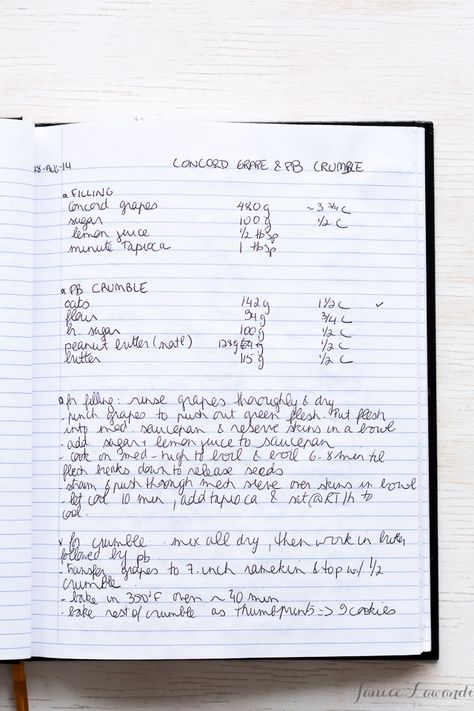 28-AUG-14 CONCORD GRAPE & PB CRUMBLE
FILLING
Concord grapes 480g ~3 3/4 C
sugar 100g 1/2 C
lemon juice 1/2 tbsp
minute Tapioca 1 tbsp
PB CRUMBLE
oats 142g 1 1/2 C ✓
flour 94g 3/4 C
br. sugar 100g 1/2 C
peanut butter (natl) 128g 1/2 C
butter 115g 1/2 C
for filling: rinse grapes thoroughly & dry
- pinch grapes to push out green flesh. Put flesh
into med saucepan & reserve skins in a bowl
- add sugar + lemon juice to saucepan
- cook on med-high to boil & boil 6-8 min til
flesh breaks down to release seeds
- strain & push through mesh sieve over skins in bowl
- let cool 10 min, add tapioca & set @RT 1h to
cool.
for crumble: mix all dry, then work in butter
followed by pb
- transfer grapes to 7-inch ramekin & top w/ 1/2
crumble
- bake in 350°F oven ~40 min
- bake rest of crumble as thumbprints => 9 cookies
Janice Lawandi